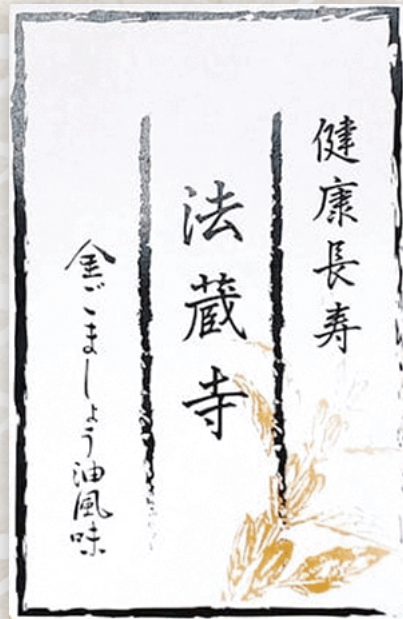 健康長寿
法蔵寺
金ごましょう油風味